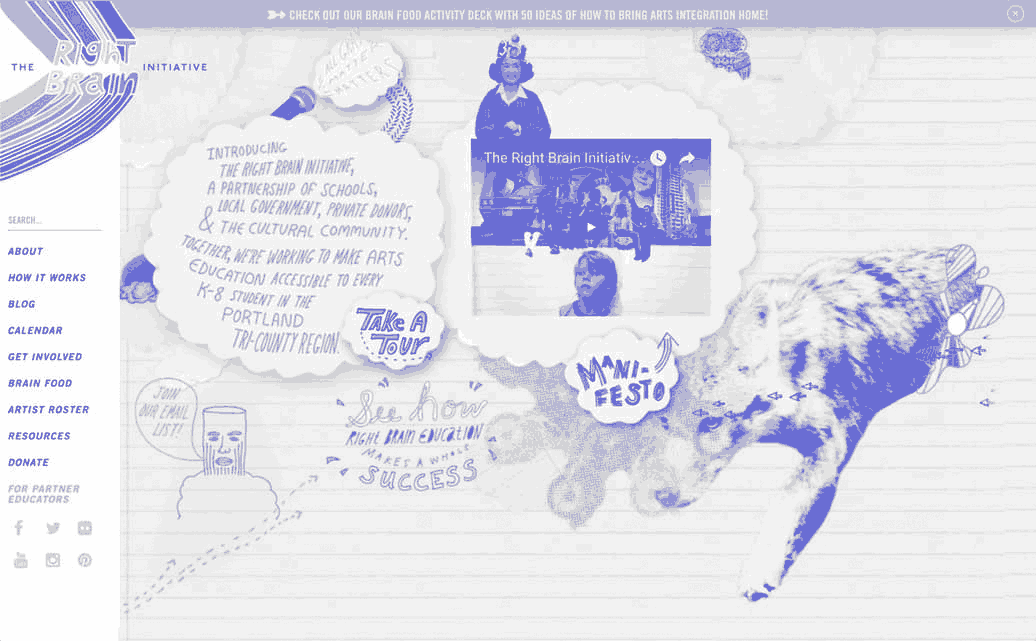 CHECK OUT OUR BRAIN FOOD ACTIVITY DECK WITH 50 IDEAS OF HOW TO BRING ARTS INTEGRATION HOME!
THE Right Brain INITIATIVE
SEARCH...
ABOUT
HOW IT WORKS
BLOG
CALENDAR
GET INVOLVED
BRAIN FOOD
ARTIST ROSTER
RESOURCES
DONATE
FOR PARTNER
EDUCATORS
MATTERS
INTRODUCING
THE RIGHT BRAIN INITIATIVE,
A PARTNERSHIP OF SCHOOLS,
LOCAL GOVERNMENT, PRIVATE DONORS,
& THE CULTURAL COMMUNITY.
TOGETHER, WE'RE WORKING TO MAKE ARTS
EDUCATION ACCESSIBLE TO EVERY
K-8 STUDENT IN THE
PORTLAND
TRI-COUNTY REGION.
TAKE A
TOUR
The Right Brain Initiativ...
MANI-
FESTO
JOIN
OUR EMAIL
LIST!
See how
RIGHT BRAIN EDUCATION
MAKES A WHOLE
SUCCESS